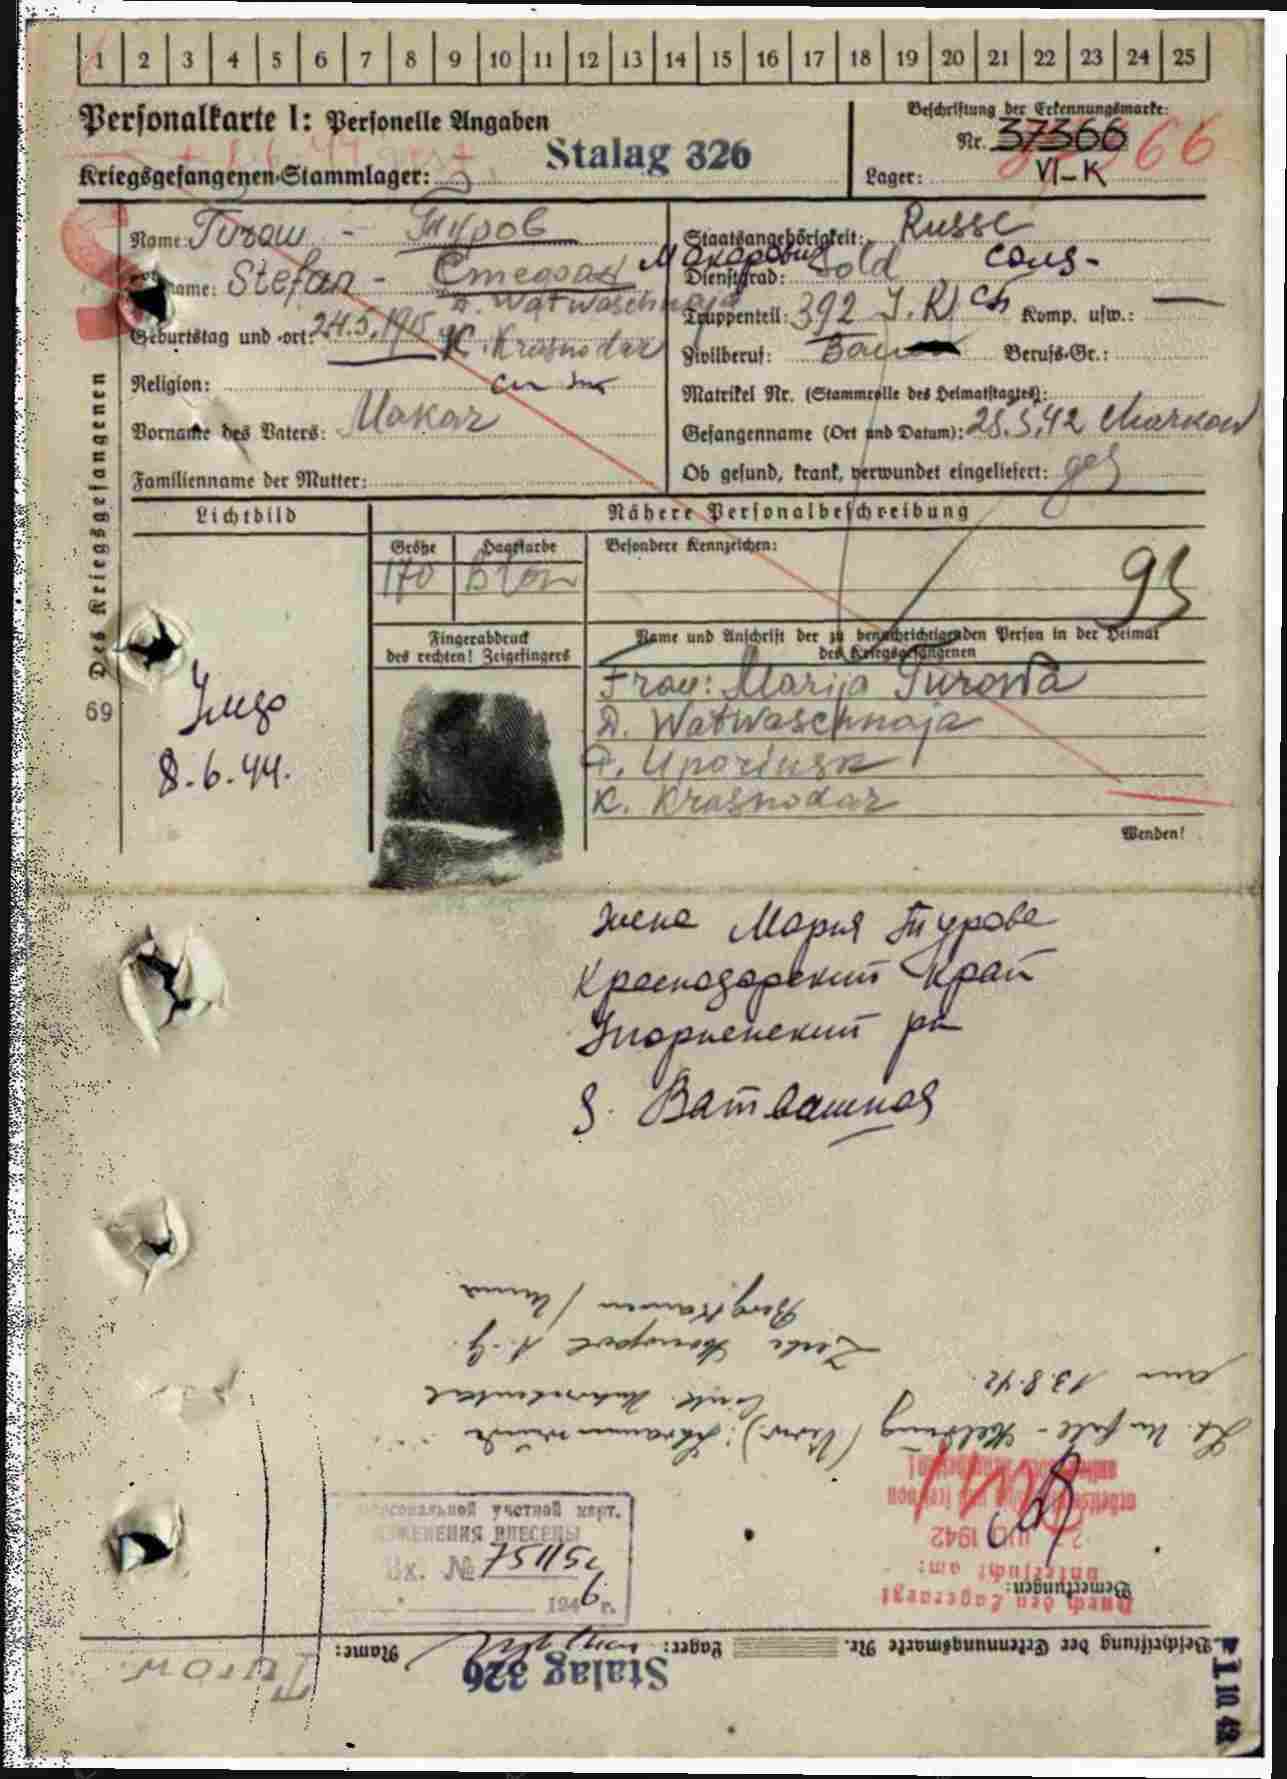 1 2 3 4 5 6 7 8 9 10 11 12 13 14 15 16 17 18 19 20 21 22 23 24 25
Personalkarte I: Personelle Angaben
Kriegsgefangenen-Stammlager: Stalag 326
Beschriftung der Erkennungsmarke:
Nr. 37366
Lager: VI-K
Name: Turow - Туров
Vorname: Stefan - Степан Макарович
D. Watwaschnaja
Geburtstag und -ort: 24.5.1915 K. Krasnodar
Religion:
Vorname des Vaters: Makar
Familienname der Mutter:
Staatsangehörigkeit: Russe
Dienstgrad: Sold солд-
Truppenteil: 392 I.R. Komp. usw.: —
Zivilberuf: Bauer Berufs-Gr.:
Matrikel Nr. (Stammrolle des Heimatstaates):
Gefangennahme (Ort und Datum): 28.5.42 Charkow
Ob gesund, krank, verwundet eingeliefert: ges
Des Kriegsgefangenen
Lichtbild
Nähere Personalbeschreibung
Größe Haarfarbe Besondere Kennzeichen:
170 Blon
93
Fingerabdruck
des rechten! Zeigefingers
Name und Anschrift der zu benachrichtigenden Person in der Heimat
des Kriegsgefangenen
Frau: Marija Turowa
D. Watwaschnaja
K. Krasnodar
69
8.6.44.
Wenden!
Жена Мария Турова
Краснодарский край
д. Ватвашная
Beschriftung der Erkennungsmarke Nr. Lager: Stalag 326 Name: Turow
Bemerkungen:
Durch den Lagerarzt
untersucht am:
1942
персональной учетной карт.
ИЗМЕНЕНИЯ ВНЕСЕНЫ
Вх. №
1949 г.
am 13.8.42
Zeche Monopol A.-G.
Bergkamen / Unna
1 10 42